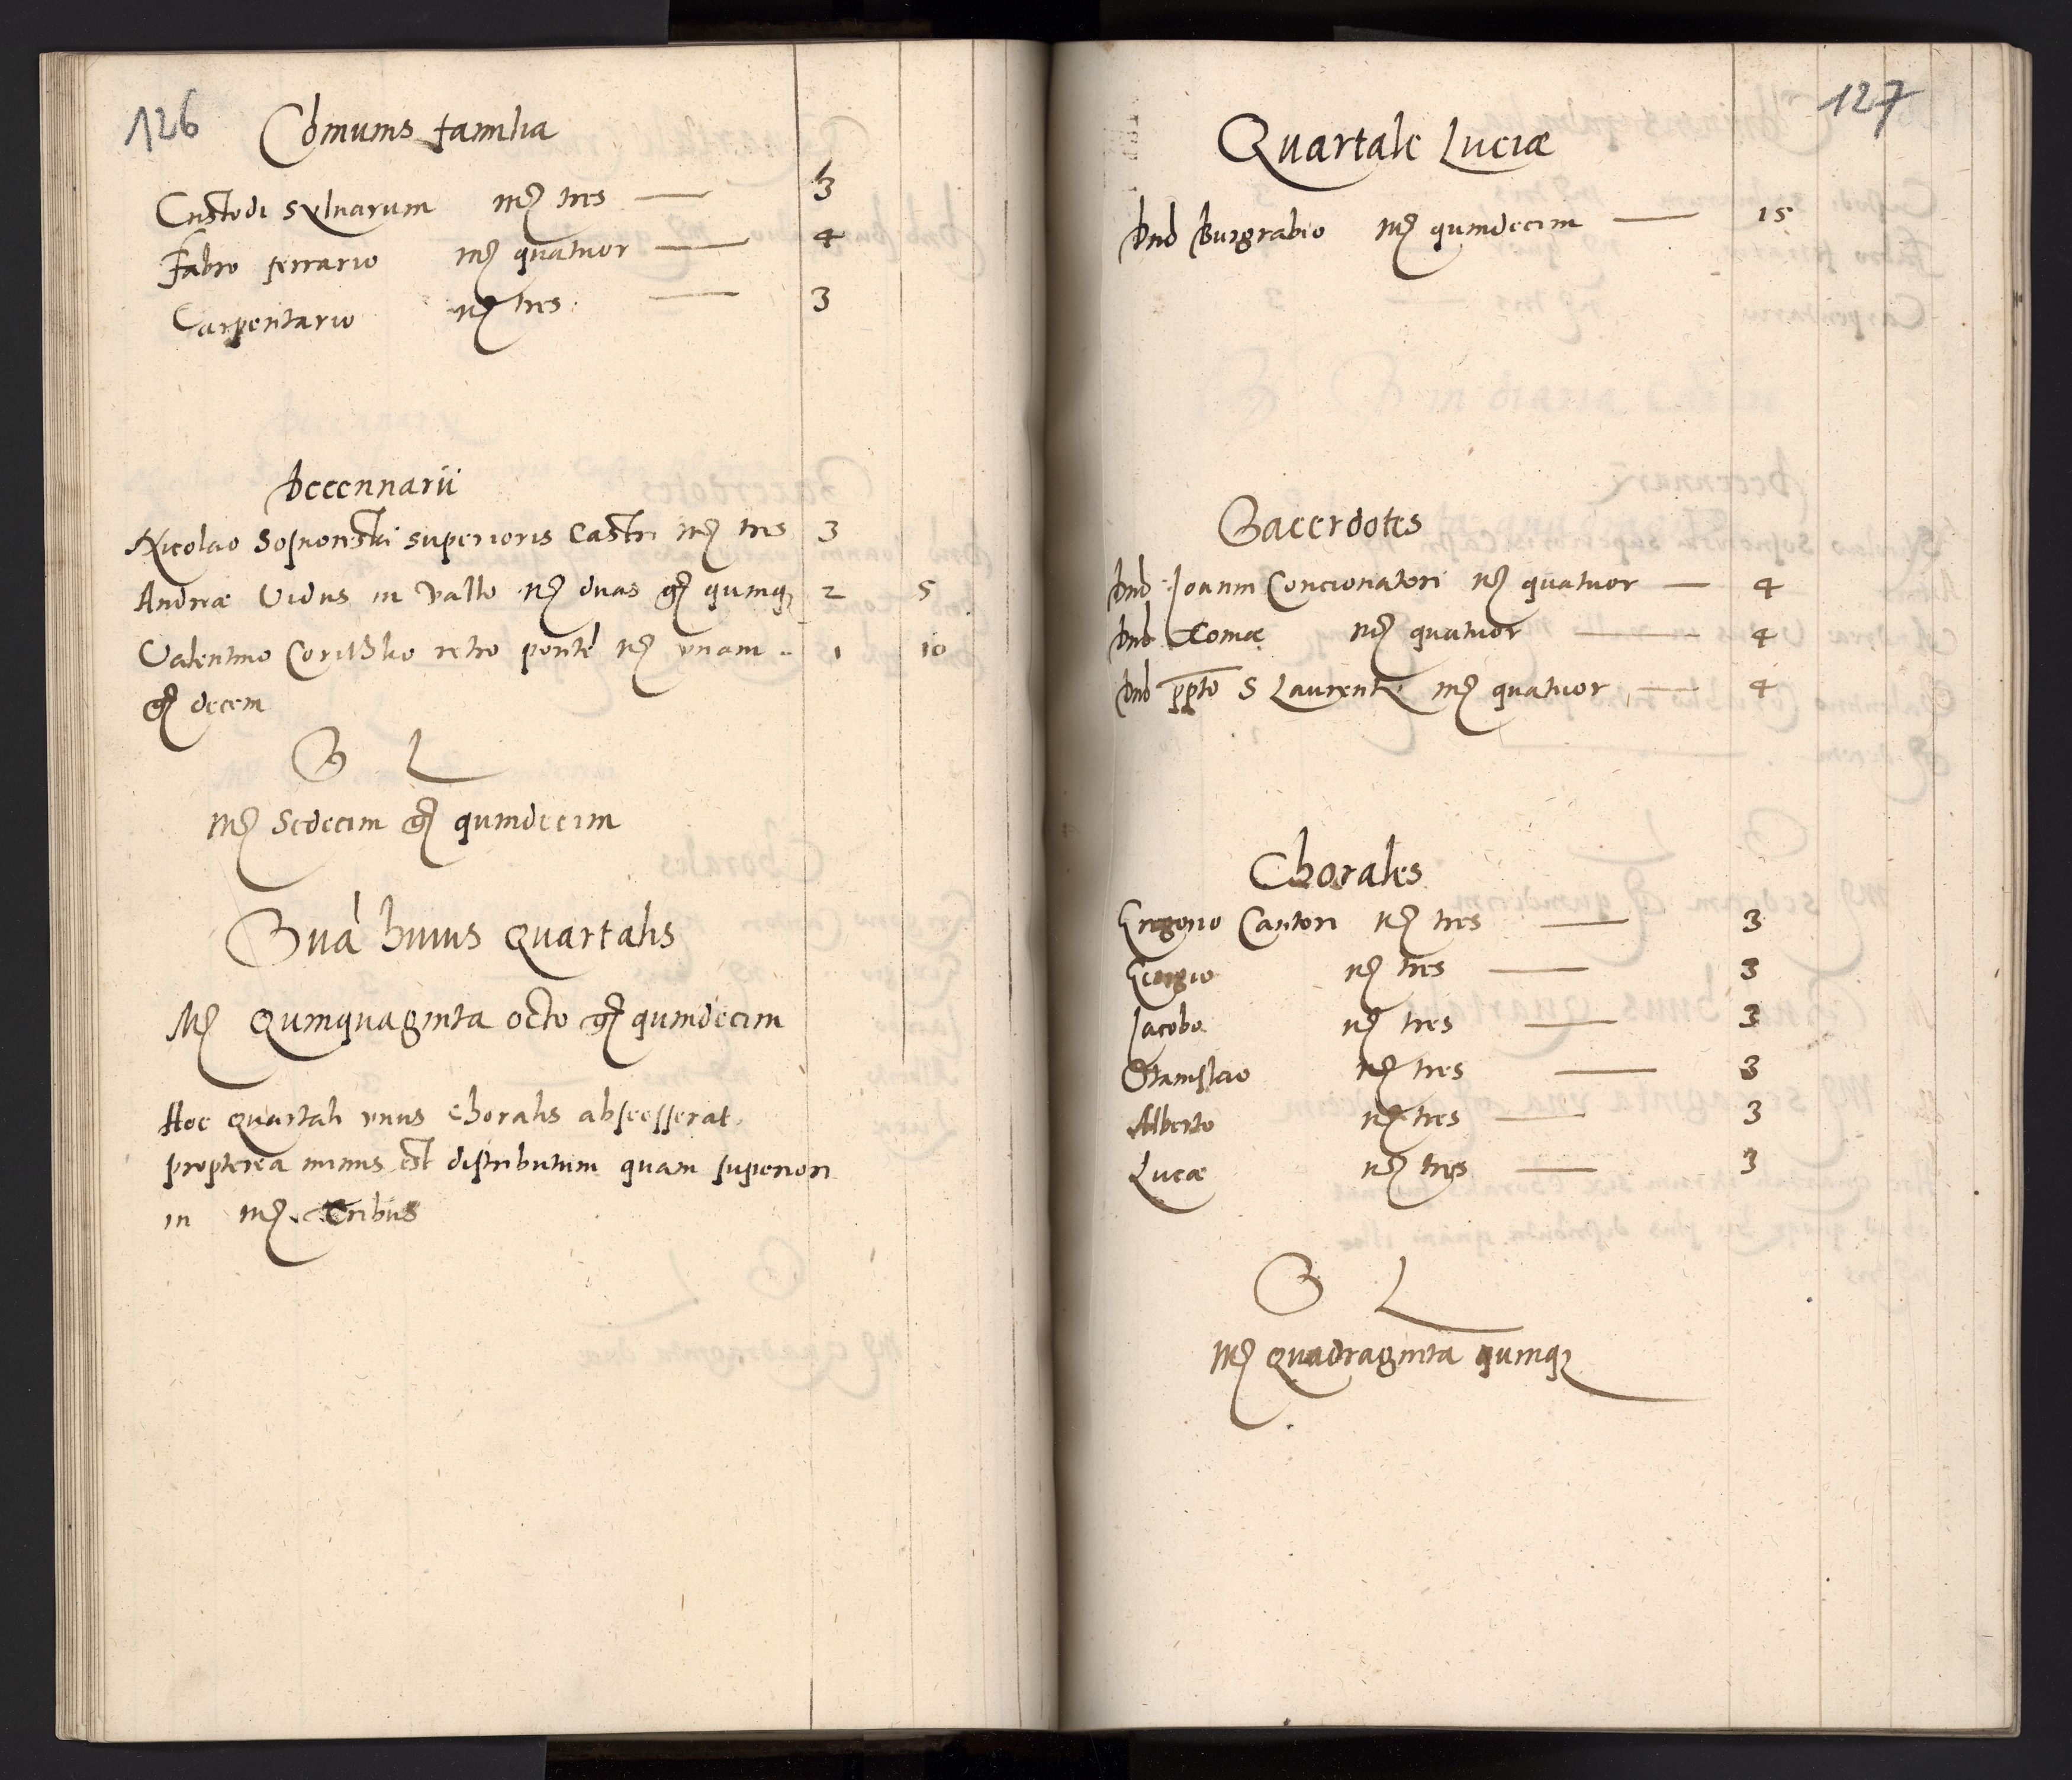 126
Cõmunis familia
Custodi Sylvarum mʒ tres — 3
Fabro ferrario mʒ quatuor — 4
Carpentario mʒ tres — 3
Decennarii
Nicolao Sosnoriski superioris Castri mʒ tres 3
Andreæ Vidus in Vallo mʒ duas gʒ quinqʒ 2 5
Valentino retro pontẽ mʒ vnam 1 10
gʒ decem
S L
Mʒ Sedecim gʒ quindecim
Suã huius Quartalis
Mʒ Quinquaginta octo gʒ quindecim
Hoc Quartali vnus Choralis abscesserat.
propterea minus est distributum quam superiori
in mʒ. tribus
127
Quartale Luciæ
Dnо Burgrabio mʒ quindecim — 15
Sacerdotes
Dno Joanni Concionatori mʒ quatuor — 4
Dno Tomæ mʒ quatuor — 4
Dno ppto S Laurentij mʒ quatuor — 4
Chorales
Gregorio Cantori mʒ tres — 3
Georgio mʒ tres — 3
Jacobo mʒ tres — 3
Stanislao mʒ tres — 3
Alberto mʒ tres — 3
Lucæ mʒ tres — 3
S L
Mʒ Quadraginta quinqʒ